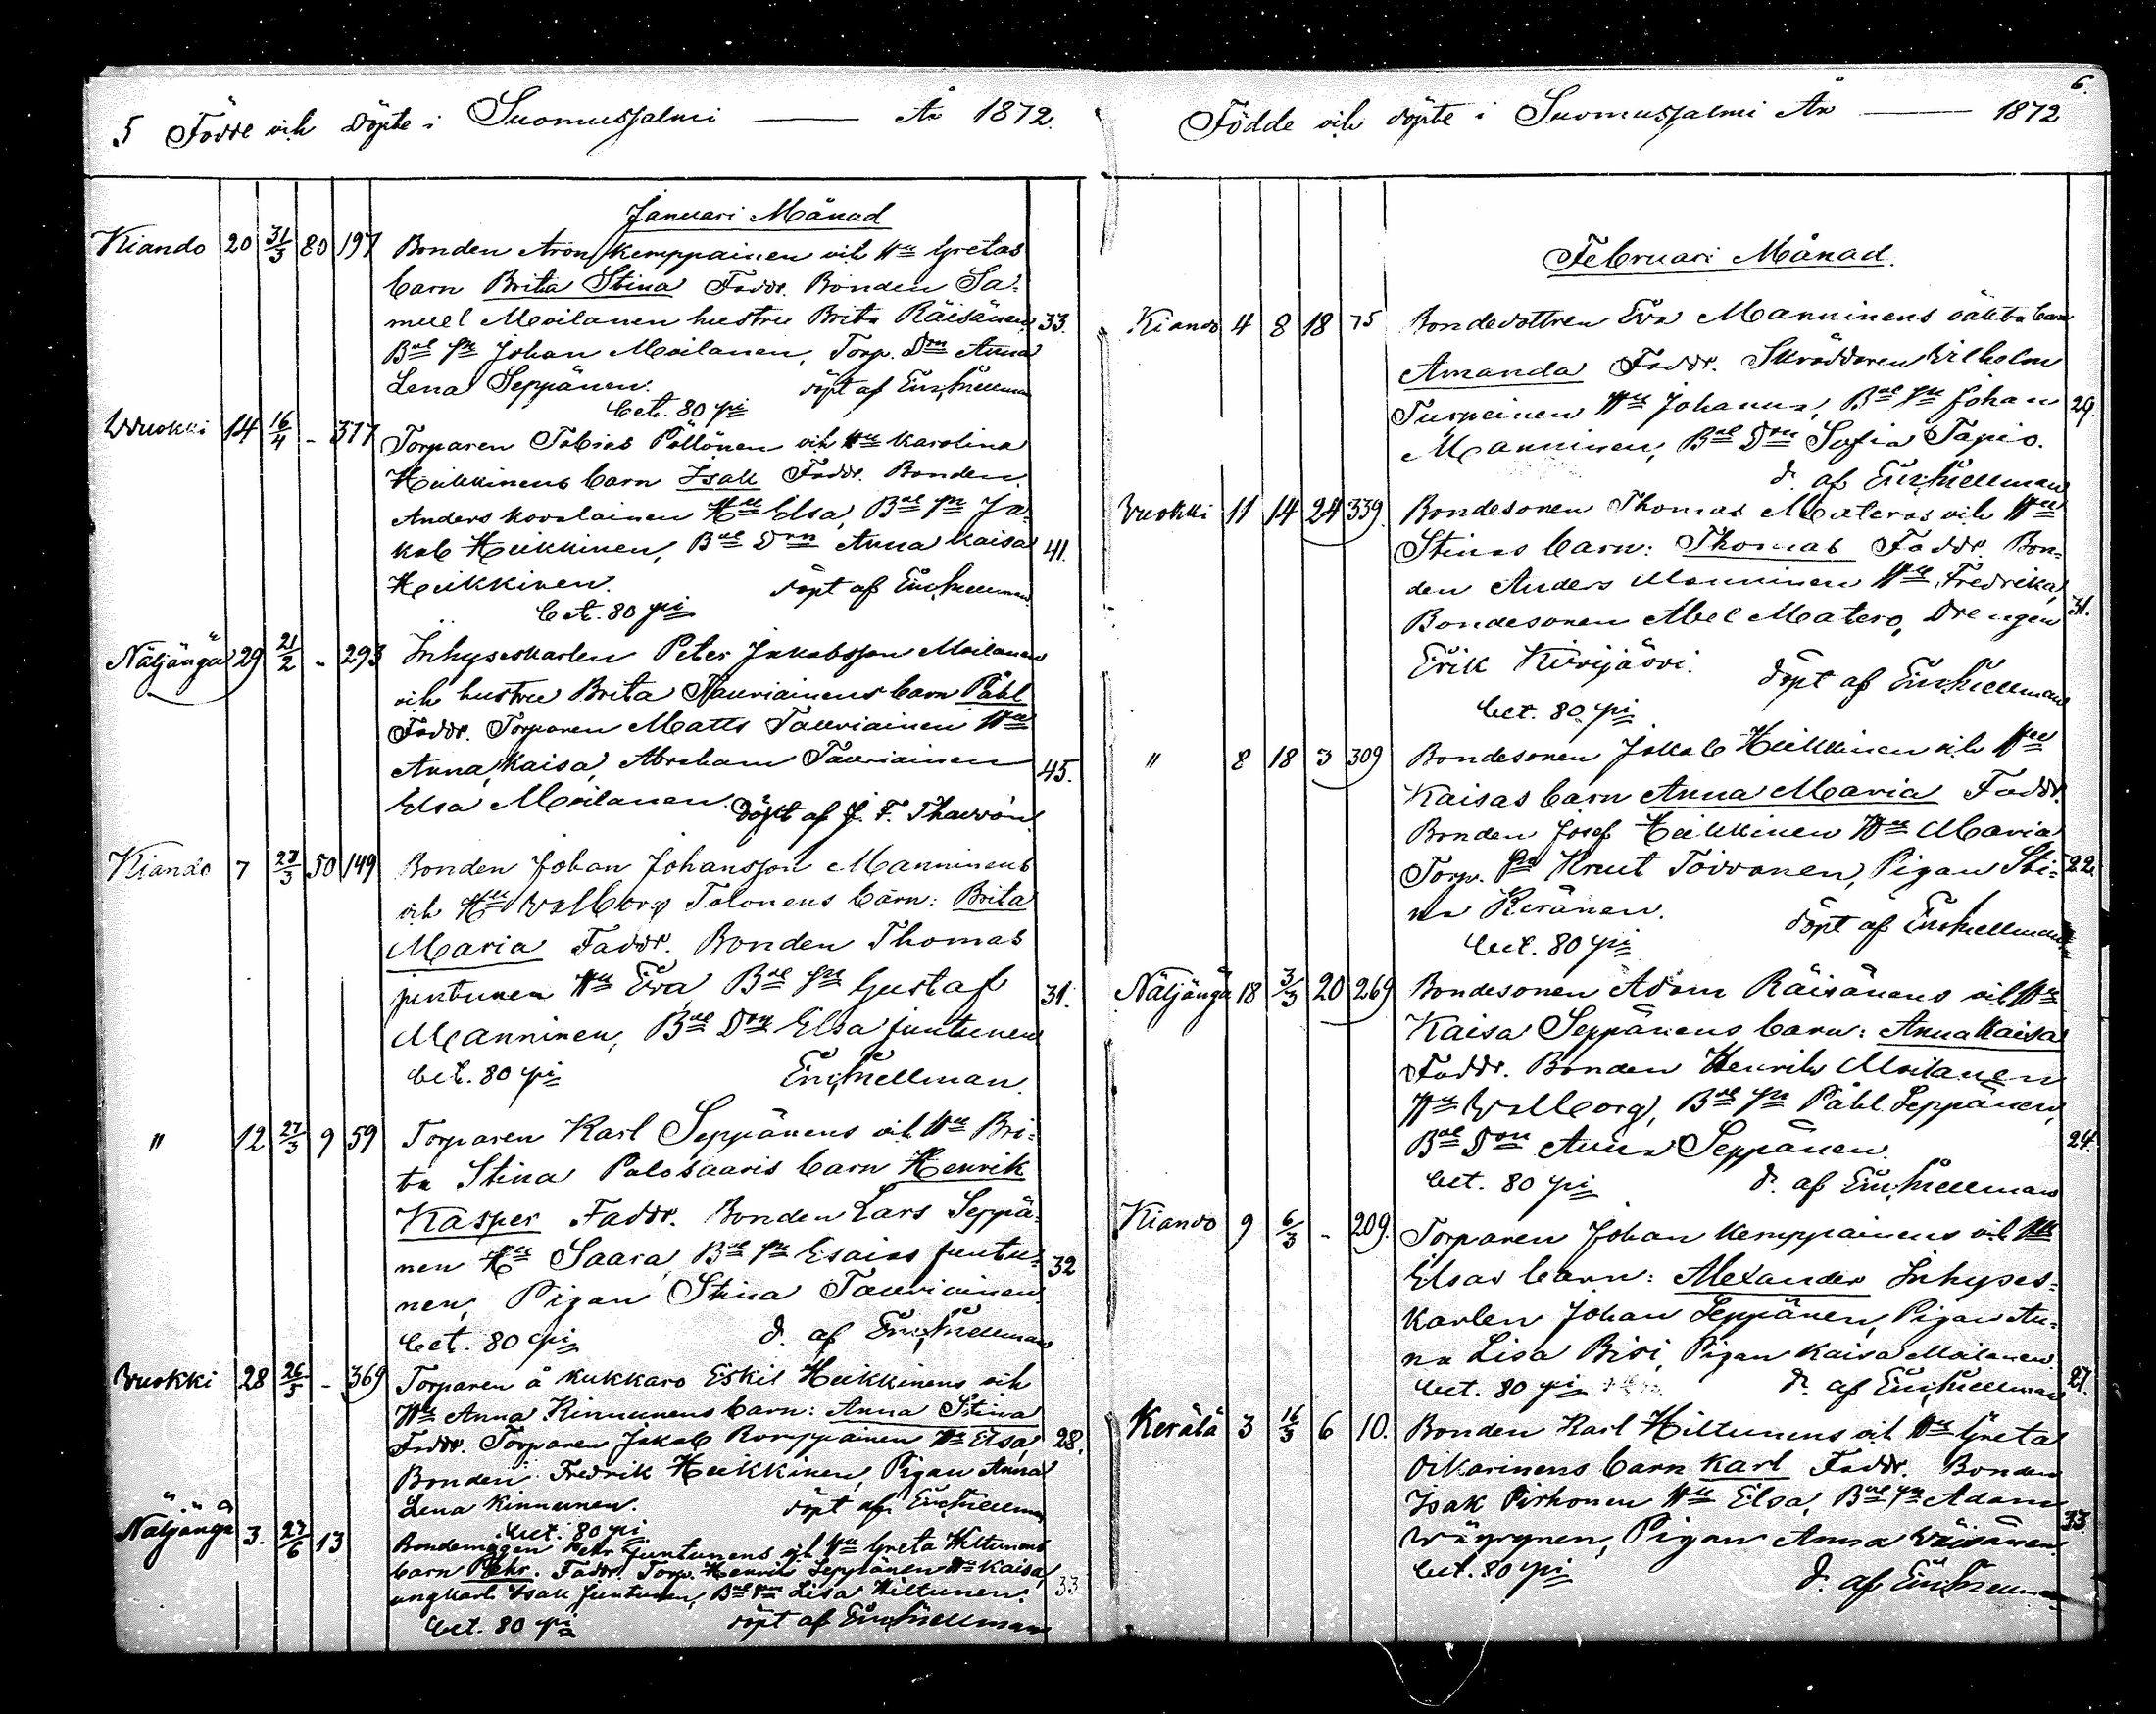 5 Födde och Döpte i Suomussalmi — År 1872.
Januari Månad
Kiando 20 31/3 80 197 Bonden Aron Kemppainen och Hu Gretas
barn Brita Stina Faddr. Bonden Sa-
muel Moilanen hustru Brita Räisänen, 33.
Bde Sn Johan Moilanen, Torp. Dtn Anna
Lena Seppänen. döpt af Em. Snellman
bet. 80 pi
Wuokki 14 16/4 - 377 Torparen Tobias Pöllönen och Hu Karolina
Heikkinens barn Isak Faddr. Bonden
Anders Kovalainen Hu Elsa, Bde Sn Ja-
kob Heikkinen, Bde Dtn Anna Kaisa 41.
Heikkinen. döpt af Em. Snellman
bet. 80 pi
Näljängä 29 21/2 - 293 Inhyseskarlen Peter Jakobsson Moilanen
och hustru Brita Tauriainens barn Påhl
Faddr. Torparen Matts Tauriainen Hu
Anna Kaisa, Abraham Tauriainen 45.
Elsa Moilanen. döpt af J. F. Thauvón.
Kiando 7 27/3 50 149 Bonden Johan Johansson Manninens
och Hu Walborg Tolonens barn: Brita
Maria Faddr. Bonden Thomas
Juntunen Hu Eva, Bde Sn Gustaf 31.
Manninen, Bde Dtn Elsa Juntunen
bet. 80 pi Em. Snellman.
" 12 27/3 9 59 Torparen Karl Seppänens och Hu Bri-
ta Stina Palosaaris barn Henrik
Kasper Faddr. Bonden Lars Seppä-
nen Hu Saara, Bde Sn Esaias Juntu- 32
nen, Pigan Stina Tauriainen.
bet. 80 pi d. af Em. Snellman
Wuokki 28 26/5 - 369 Torparen å Kukkaro Eskil Heikkinens och
Hu Anna Kinnunens barn: Anna Stina
Faddr. Torparen Jakob Romppainen Hu Elsa, 28.
Bonden Fredrik Heikkinen, Pigan Anna
Lena Kinnunen. döpt af Em. Snellman
bet. 80 pi
Näljängä 3. 27/6 13 Bondemågen Pehr Juntunens och Hu Greta Hiltunens
barn Pehr. Faddr. Torp. Henrik Seppänen Hu Kaisa,
ungkarl Isak Juntunen, Bde Dtn Lisa Hiltunen. 33
bet. 80 pi döpt af Em. Snellman
6.
Födde och döpte i Suomussalmi År — 1872
Februari Månad.
Kiando 4 8 18 75 Bondedottren Eva Manninens oäkta barn
Amanda Faddr. Skräddaren Wilhelm
Turpeinen Hu Johanna, Bde Sn Johan 29.
Manninen, Bde Dtn Sofia Tapio.
d. af Em. Snellman
Wuokki 11 14 24 339. Bondesonen Thomas Materos och Hu
Stinas barn: Thomas Faddr. Bon-
den Anders Manninen Hu Fredrika, 31.
Bondesonen Abel Matero, Drengen
Erik Kivijärvi. döpt af Em. Snellman
bet. 80 pi
" 8 18 3 309 Bondesonen Jakob Heikkinen och Hu
Kaisas barn Anna Maria Faddr.
Bonden Josef Heikkinen Hu Maria
Torp. Sn Knut Toivonen, Pigan Sti- 22.
na Keränen. döpt af Em. Snellman
bet. 80 pi
Näljängä 18 3/3 20 269 Bondesonen Adam Räisänens och Hu
Kaisa Seppänens barn: Anna Kaisa
Faddr. Bonden Henrik Moilanen
Hu Walborg, Bde Sn Påhl Seppänen,
Bde Dtn Anna Seppänen. 24.
bet. 80 pi d. af Em. Snellman
Kiando 9 6/3 - 209. Torparen Johan Kemppainens och Hu
Elsas barn: Alexander Inhyses-
karlen Johan Seppänen, Pigan An-
na Lisa Bisi, Pigan Kaisa Moilanen.
bet. 80 pi d. af Em. Snellman 27.
Kerälä 3 16/3 6 10. Bonden Karl Hiltunens och Hu Greta
Oikarinens barn Karl Faddr. Bonden
Isak Pirhonen Hu Elsa, Bde Sn Adam 33.
Wäyrynen, Pigan Anna Wäisänen.
bet. 80 pi d. af Em. Snellman